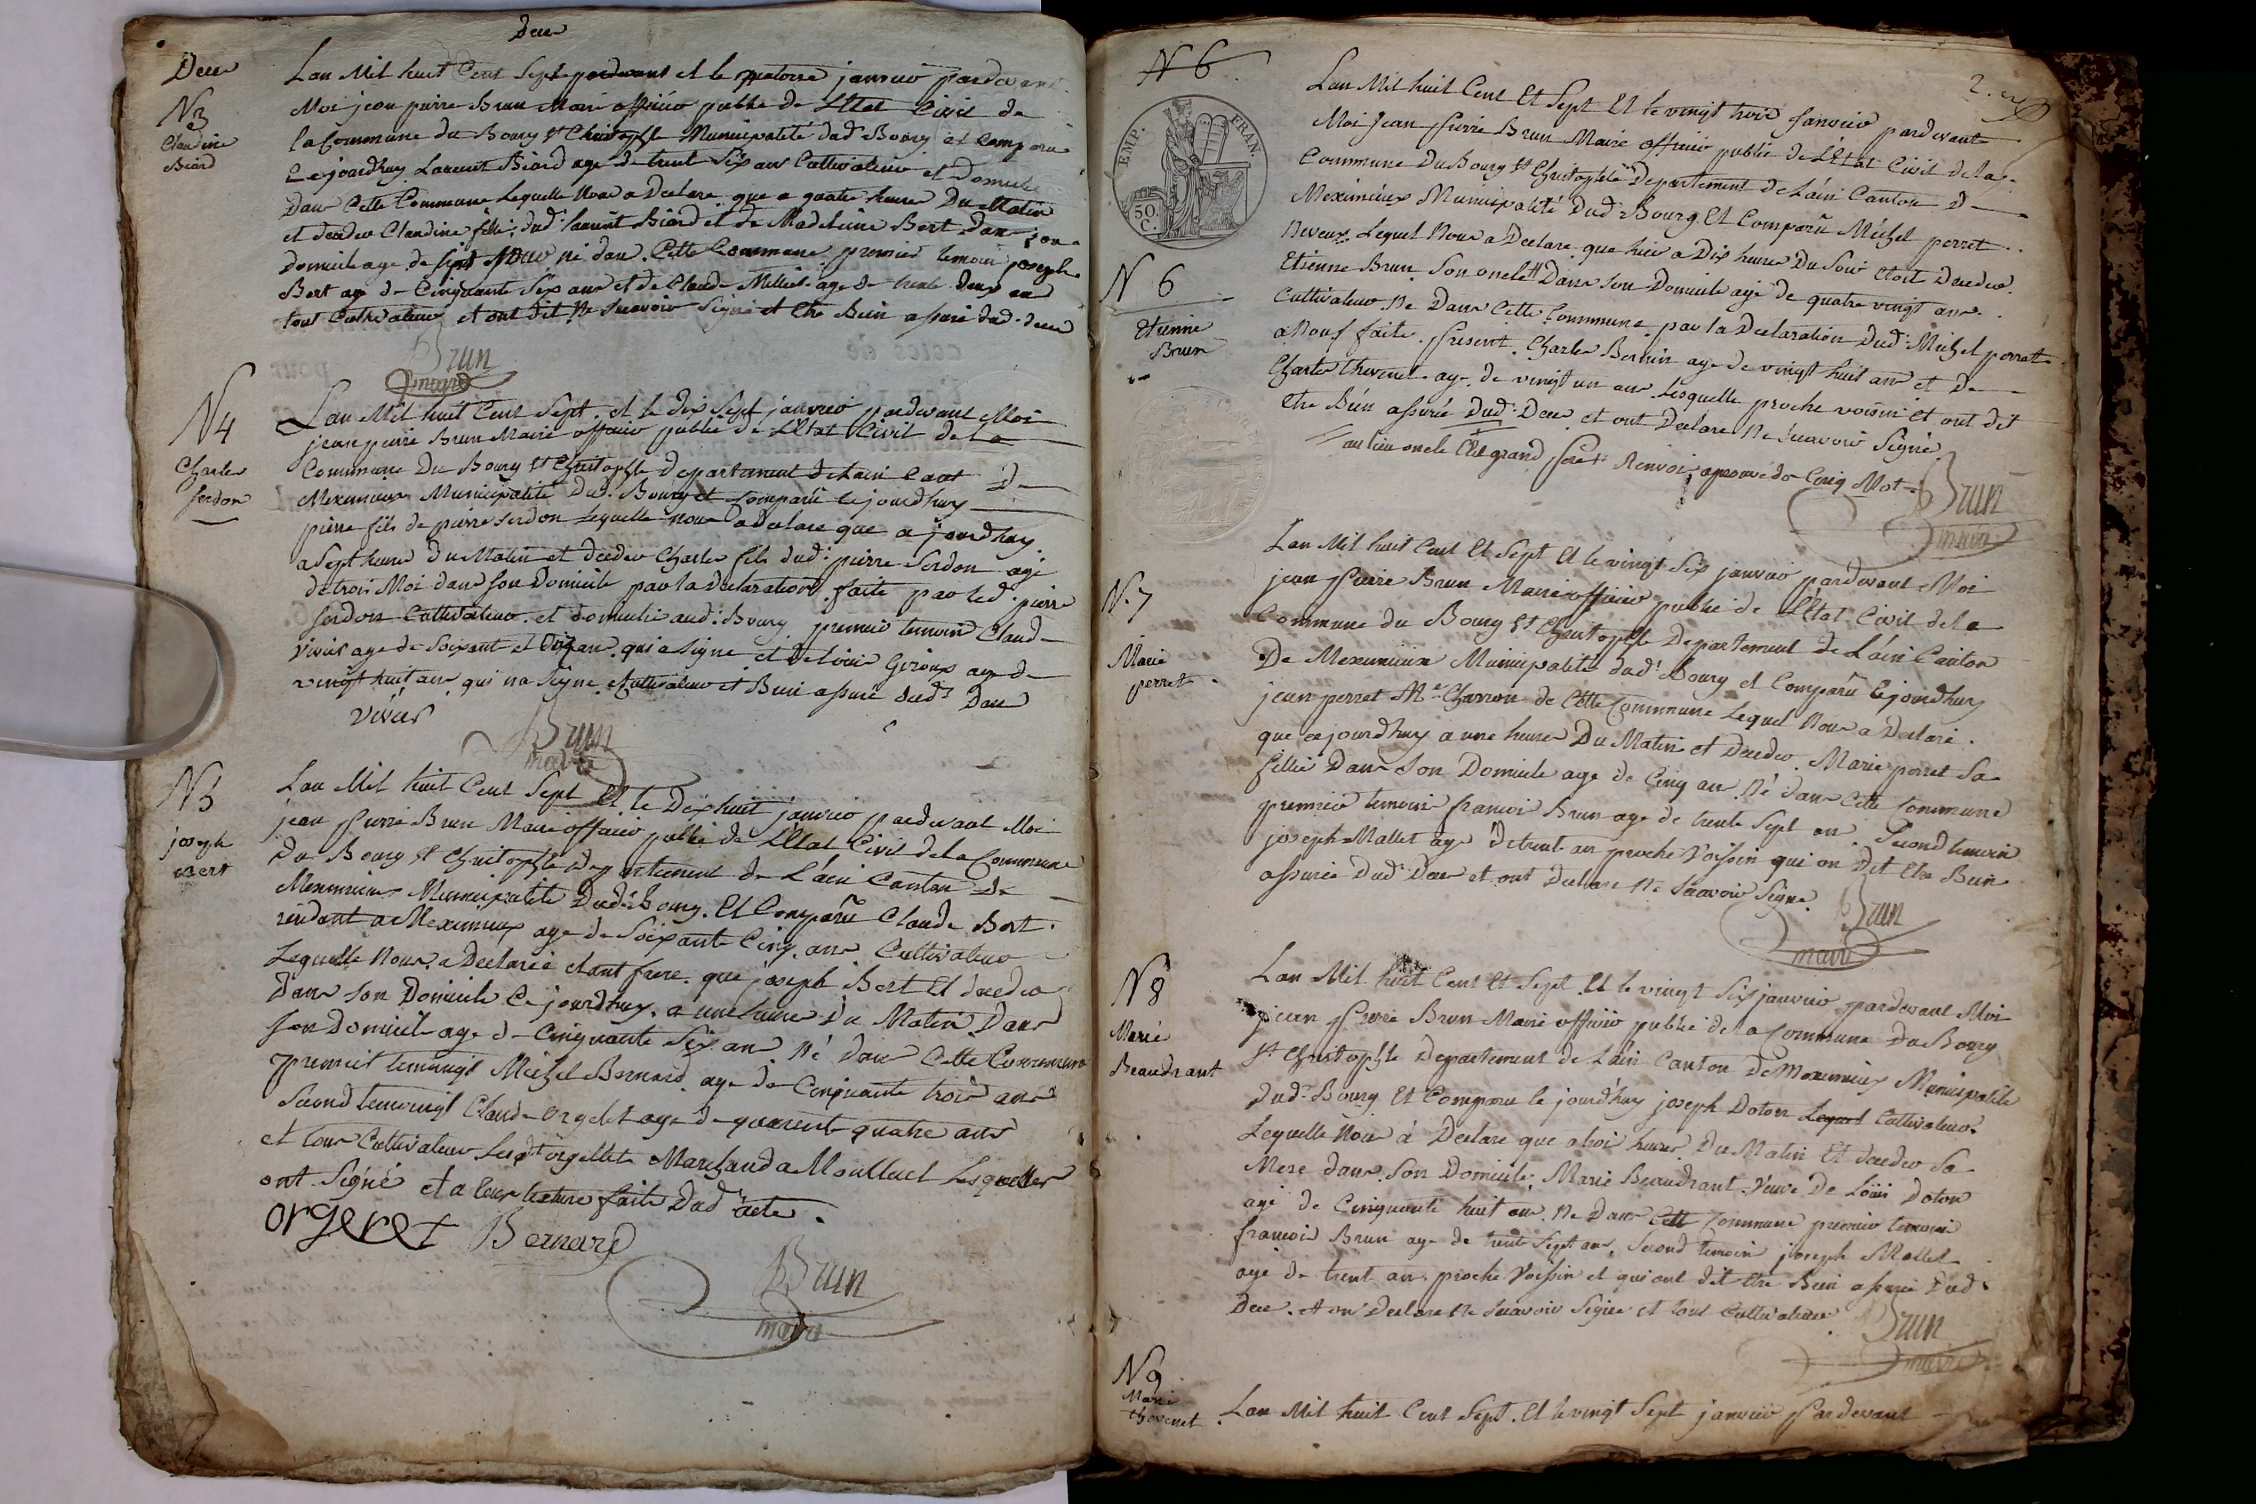 Dece
Dece
N 3
Claudine
Biard
Lan Mil huit Cent Sept pardevant et le quatorze janvier pardevant
Moi jean pierre Brun Maire officier public de L'Etat Civil de
la Commune du Bourg St Christophle Municipalité dud Bourg et comparu
Cejourdhuy Laurent Biard age de trent Six ans Cultivateur et Domicilie
Dans Cette Commune Lequelle Nous a Declare que a quatre heure Du Matin
et decedee Claudine fille dud Laurent Biard et de Madeleine Bert Dans son
domicile age de Sept ne dans Cette Commune premier temoin joseph
Bert age de Cinquante Six ans et de Claude Milliet age de trente deux ans
tout Cultivateur et ont dit Ne Scavoir Signe et Etre Bien assuré dud dece
Brun
maire
N 4
Charles
Serdon
Lan Mil huit Cent Sept et le dix Sept janvier pardevant Moi
jean pierre Brun Maire officier public de L'Etat Civil de La
Commune Du Bourg St Christophle departement de Lain Cant D
Meximieux Municipalité Dud Bourg et Comparu Cejourdhuy
pierre fils de pierre Serdon Lequelle nous a Declare que a jourdhuy
a Sept heure du Matin et decedee Charles fils dud pierre Serdon age
de trois Moi dans son Domicile par la Declaration faite par led pierre
Serdon Cultivateur et domicilie aud Bourg premier temoin Claude
Vivier age de Soixante et ans qui a Signe et de Louis Giroux age de
vingt huit ans qui na Signe Cultivateur et Bien assuré dud Dece
Vivier
Brun
maire
N 5
joseph
Bert
Lan Mil huit Cent Sept Et le Dix huit janvier pardevant Moi
jean pierre Brun Maire officier public de L'Etat Civil de la Commune
Du Bourg St Christophle departement de Lain Canton de
Meximieux Municipalité Dud Bourg Et Comparu Claude Bert
residant a Meximieux age de Soixante Cinq ans Cultivateur
Lequelle Nous a Declaree etant frere que joseph Bert Et decedee
dans son Domicile Cejourdhuy a une heure Du Matin Dans
son Domicile age de Cinquante Six an Né Dans Cette Commune
premier temoingt Michel Bernard age de Cinquante trois ans
Second temoingt Claude Orgelet age de quarente quatre ans
et tous Cultivateur Led orgellet Marchand a Montluel Lesquelles
ont Signé et a leur lecture faite Dud acte
orgeret Bernard
Brun
maire
N 6
EMP. FRAN.
50 C.
N 6
etienne
Brun
Lan Mil huit Cent Et Sept Et le vingt trois Janvier pardevant
Moi Jean Pierre Brun Maire officier public de L'Etat Civil de la
Commune Du Bourg St Christophle Departement de Lain Canton D
Meximieux Municipalité Dud Bourg Et Comparu Michel perret
Neveux Lequel Nous a Declare que hier a Dix heure Du Soir Etoit Decedee
Etienne Brun Son oncle Dans son Domicile age de quatre vingt ans
Cultivateur Ne Dans Cette Commune par la Declaration Dud Michel perret
a Nous faite present Charles Bernin age de vingt huit ans et de
Charles thevenet age de vingt un ans Lesquelle proche voisin et ont dit
Etre Bien assurée Dud Dece et ont Declare Ne Scavoir Signe
au lieu oncle Est grand pere Renvoi aprouve de Cinq Mot
Brun
maire
N 7
Marie
perret
Lan Mil huit Cent Et Sept Et le vingt Six janvier pardevant Moi
jean Pierre Brun Maire officier public de L'Etat Civil de la
Commune du Bourg St Christophle Departement de Lain Canton
De Meximieux Municipalite dud Bourg et Comparu Cejourdhuy
jean perret Me Charron de Cette Commune Lequel Nous a Declaré
que cejourdhuy a une heure Du Matin et Decedee Marie perret Sa
fillie Dans Son Domicile age de Cinq an Né dans Cette Commune
premier temoin francoi Brun age de trente Sept an Second temoin
joseph Mallet age de trent an proche Voissin qui on Dit Etre Bien
assurée Dud Dece et ont Declare Ne Scavoir Signe
Brun
maire
N 8
Marie
Beaudrant
Lan Mil huit Cent Et Sept Et le vingt Six janvier pardevant Moi
jean Pierre Brun Maire officier public de la Commune Du Bourg
St Christophle Departement de Lain Canton De Meximieux Municipalité
Dud Bourg Et Comparu le jourdhuy joseph Doton Lequel Cultivateur
Lequelle Nous a Declare que a troi heure Du Matin Et decedee Sa
Mere dans Son Domicile Marie Beaudrant Veuve De Loui Doton
age de Cinquante huit ans Ne Dans Cette Commune premier temoin
francois Brun age de trente Sept ans Second temoin joseph Mollet
age de trent an proche Voissin et qui ont dit Etre Bien assure Dud
Dece et on Declare Ne Scavoir Signe et tous Cultivateur
Brun
maire
N 9
Marie
thevenet
Lan Mil huit Cent Sept Et le vingt Sept janvier Pardevant